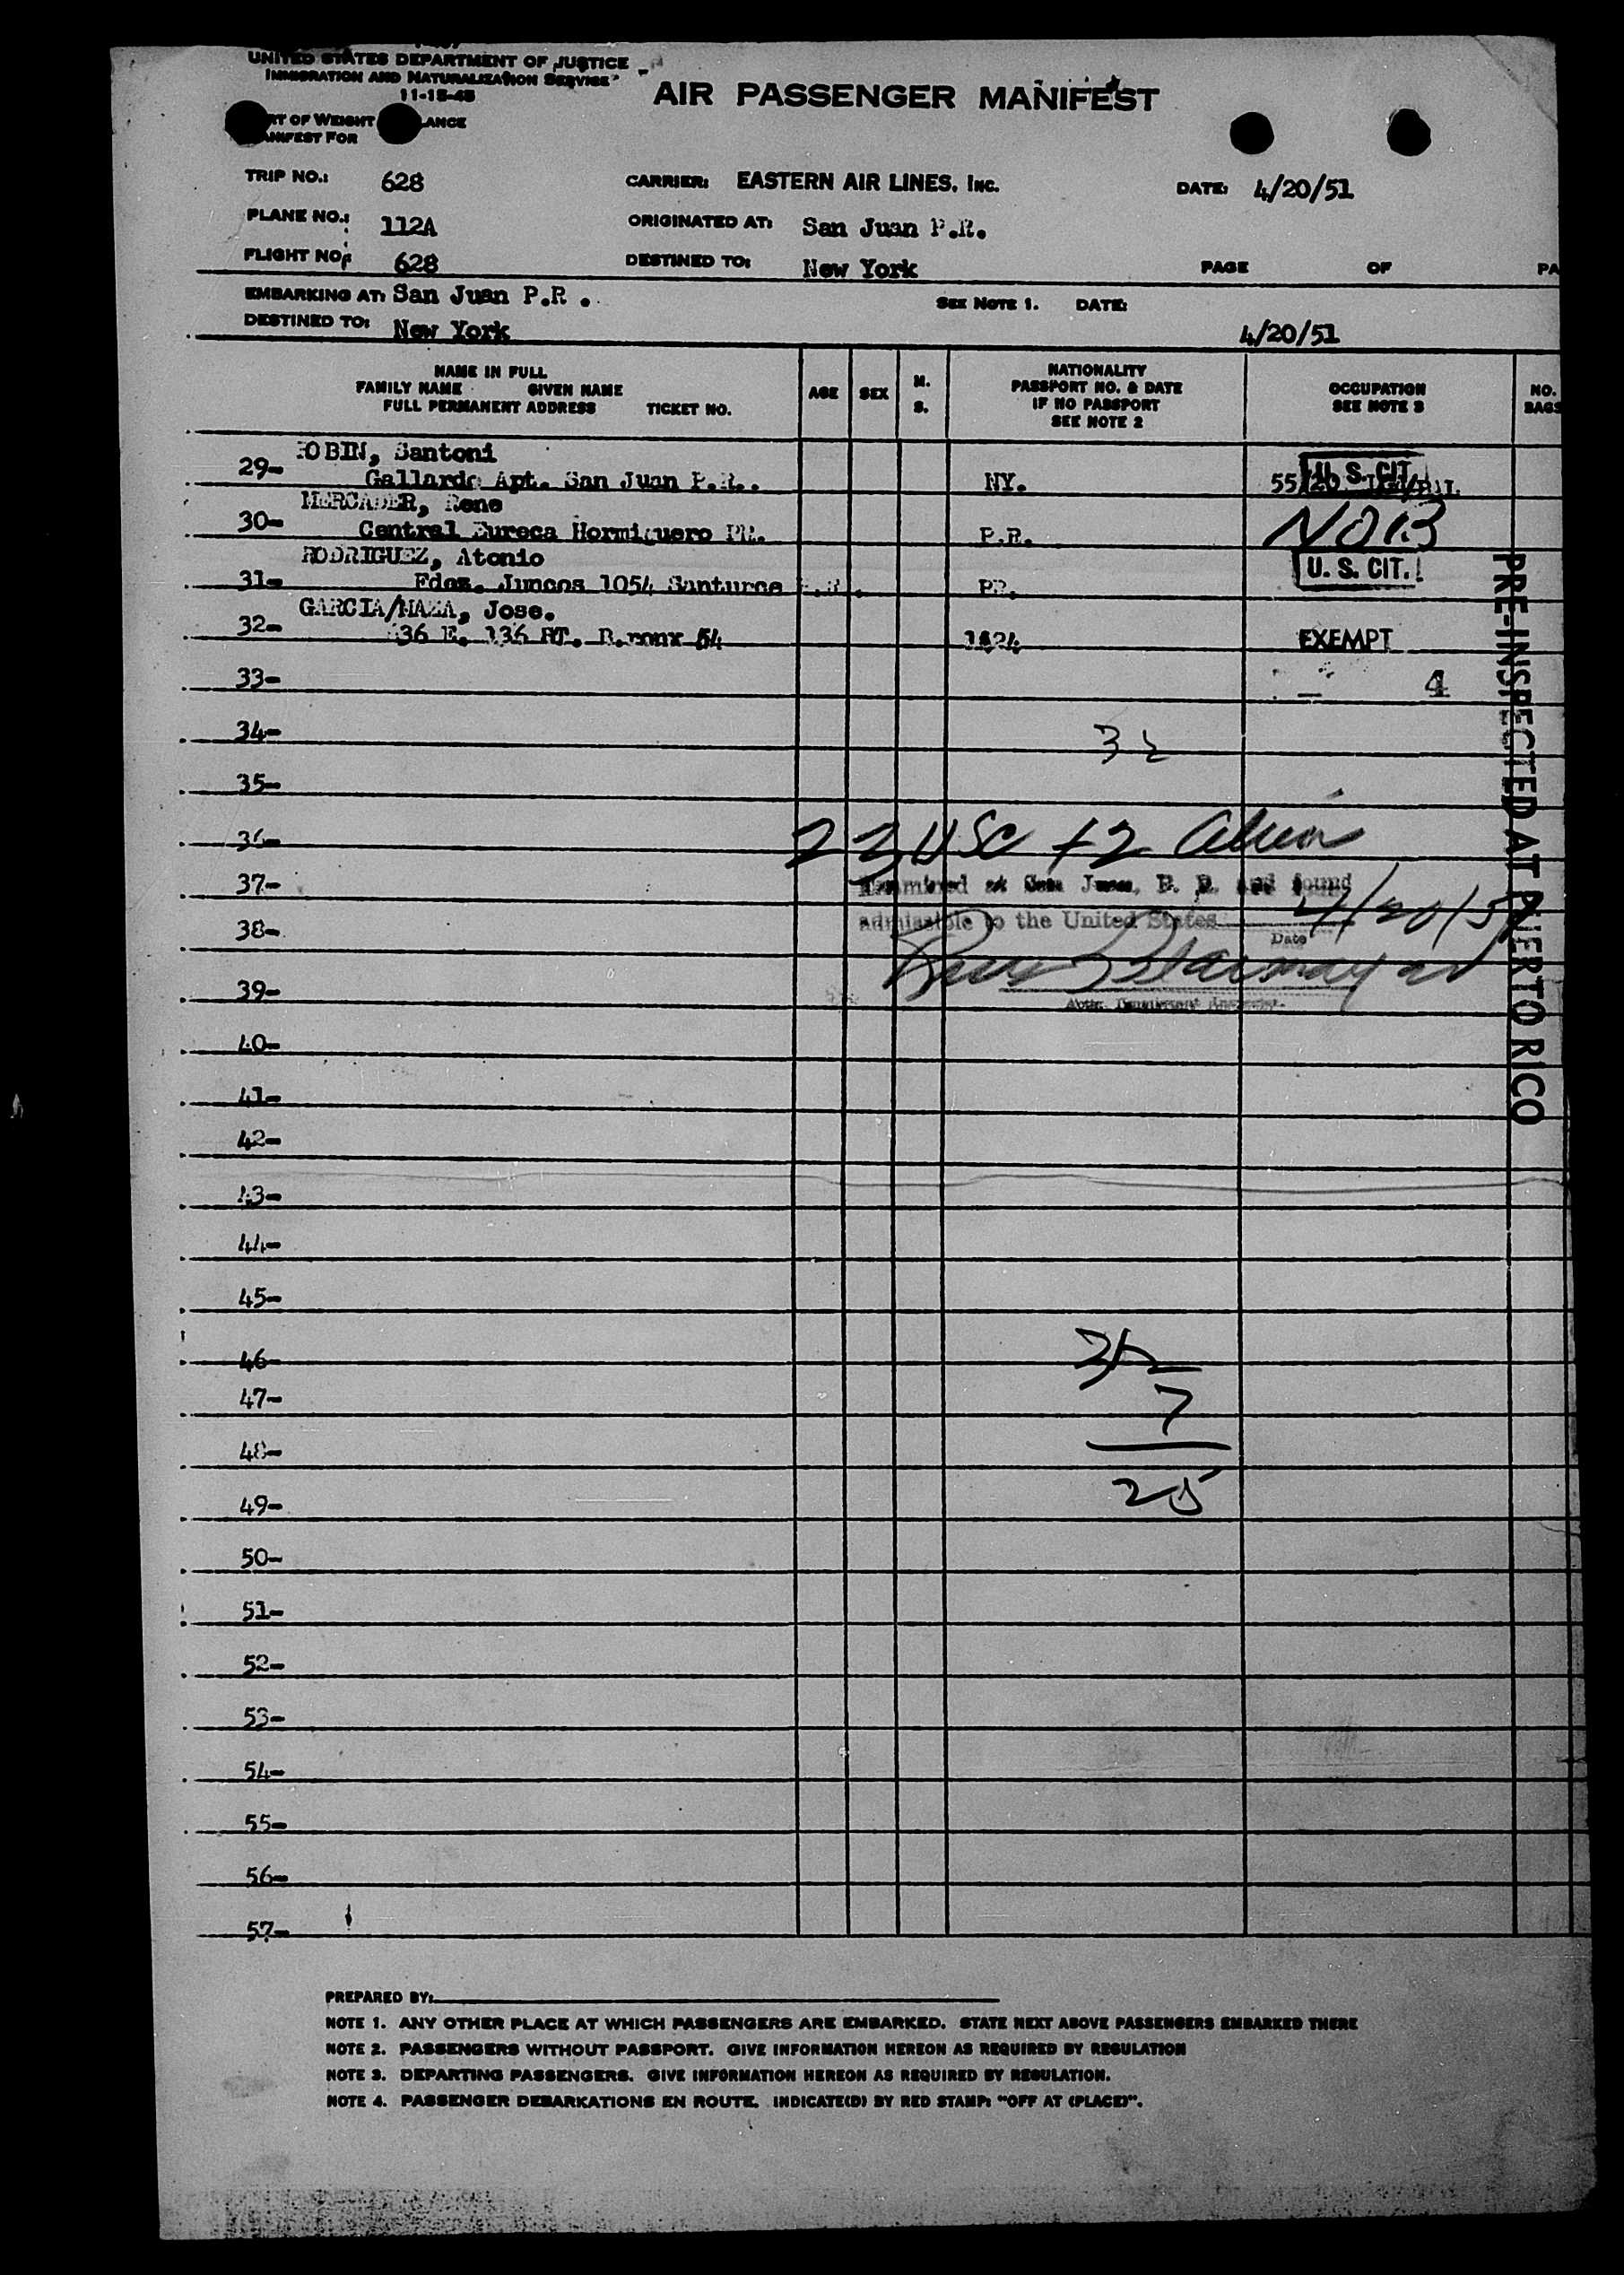 UNITED STATES DEPARTMENT OF JUSTICE
IMMIGRATION AND NATURALIZATION SERVICE
11-15-45
AIR PASSENGER MANIFEST
OF WEIGHT
FOR
TRIP NO.: 628 CARRIER: EASTERN AIR LINES, INC. DATE: 4/20/51
PLANE NO.: 112A ORIGINATED AT: San Juan P.R.
FLIGHT NO: 628 DESTINED TO: New York PAGE OF PA
EMBARKING AT: San Juan P.R . SEE NOTE 1. DATE:
DESTINED TO: New York 4/20/51
NAME IN FULL
FAMILY NAME GIVEN NAME
FULL PERMANENT ADDRESS TICKET NO.
AGE SEX M. S.
NATIONALITY
PASSPORT NO. & DATE
IF NO PASSPORT
SEE NOTE 2
OCCUPATION
SEE NOTE 3
NO.
BAGS
OBIN, Santoni
29- Gallardo Apt. San Juan P.R.. NY. U. S. CIT.
MERCADER, Rene
30- Central Eureca Hormiguero PR. P.R.
RODRIGUEZ, Atonio
31- Fdez. Juncos 1054 Santurce P.R. PR. U. S. CIT.
GARCIA/MAZA, Jose.
32- 36 E. 136 ST. B.ronx 54 1624 EXEMPT
33- 4
34- 32
35-
36- 23 USC + 2 Alien
37- Examined at San Juan, P. R. and found
38- admissible to the United States 4/20/51
Date
39-
40-
41-
42-
43-
44-
45-
46- 32
47- 7
48-
49- 25
50-
51-
52-
53-
54-
55-
56-
57-
PRE-INSPECTED AT PUERTO RICO
PREPARED BY:
NOTE 1. ANY OTHER PLACE AT WHICH PASSENGERS ARE EMBARKED. STATE NEXT ABOVE PASSENGERS EMBARKED THERE
NOTE 2. PASSENGERS WITHOUT PASSPORT. GIVE INFORMATION HEREON AS REQUIRED BY REGULATION
NOTE 3. DEPARTING PASSENGERS. GIVE INFORMATION HEREON AS REQUIRED BY REGULATION.
NOTE 4. PASSENGER DEBARKATIONS EN ROUTE. INDICATE(D) BY RED STAMP: "OFF AT (PLACE)".